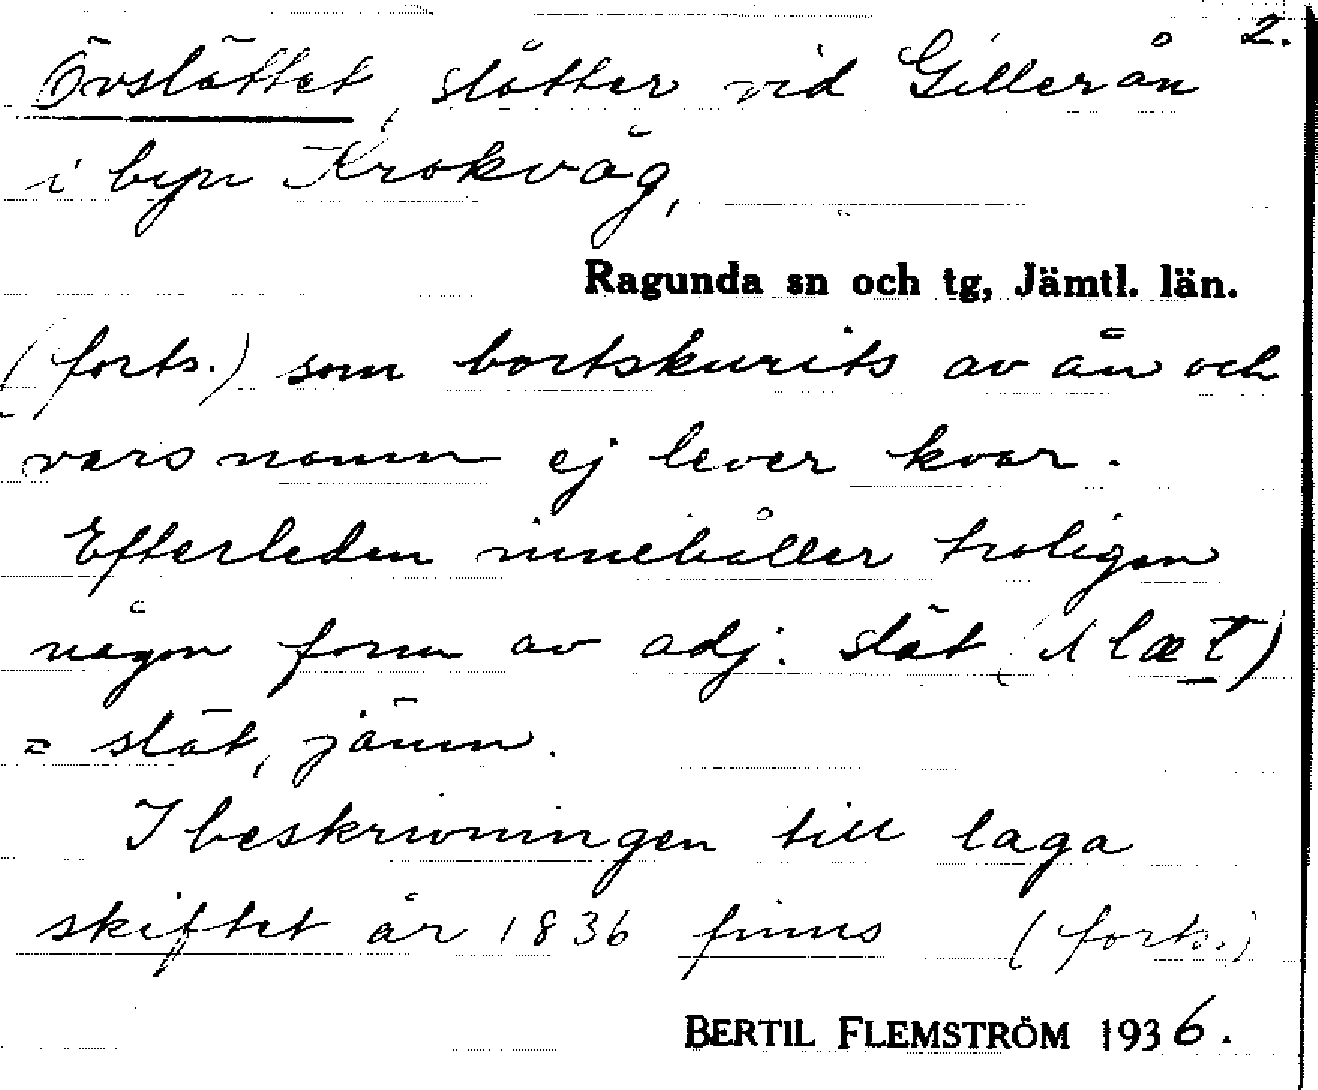 2.
Övslättet, slåtter vid Gillerån
i byn Krokvåg,
Ragunda sn och tg, Jämtl. län.
(forts.) som bortskurits av ån och
vars namn ej lever kvar.
Efterleden innehåller troligen
någon form av adj. slät (slæt)
= slät, jämn.
I beskrivningen till laga
skiftet år 1836 finns (forts.)
BERTIL FLEMSTRÖM 1936.